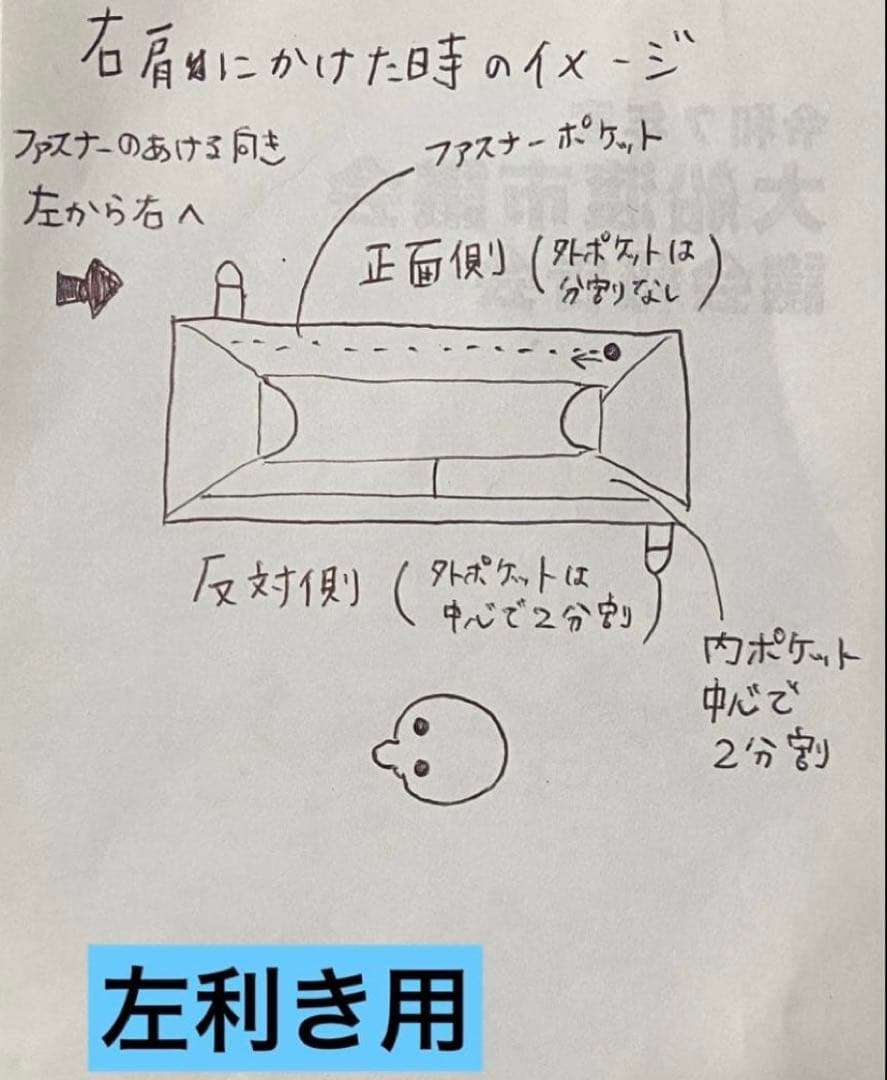 右肩にかけた時のイメージ
ファスナーのあける向き
左から右へ
ファスナーポケット
正面側(外ポケットは
分割りなし)
反対側(外ポケットは
中心で2分割)
内ポケット
中心で
2分割
左利き用
令和7年
大船渡市議会
議会